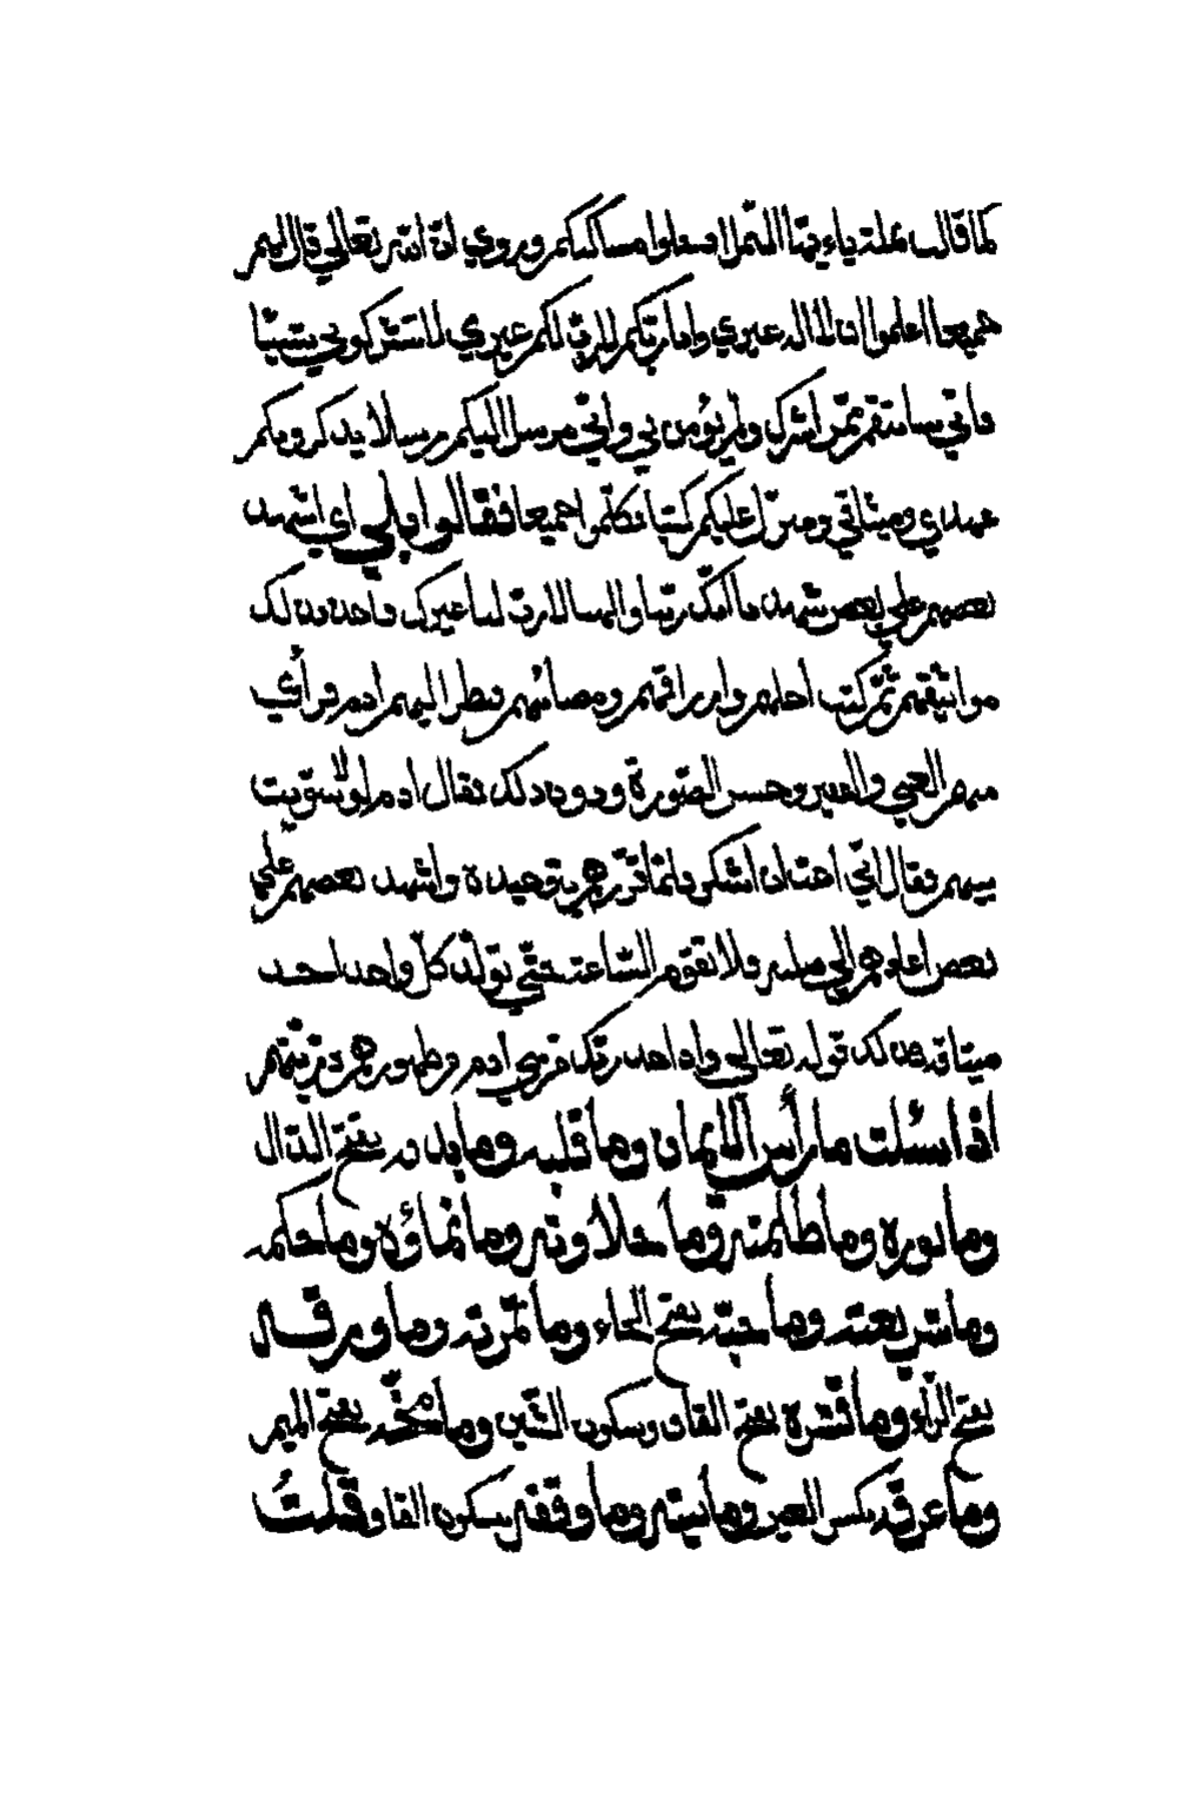 كما قالت نملة ياءيها النمل ادخلوا مساكنكم وروي ان الله تعالى قال لهم
جميعا اعلموا ان لا اله غيري وانا ربكم لا رب لكم غيري لا تشركوا بي شيئا
فاني سانتقم ممن اشرك ولم يؤمن بي واني مرسل اليكم رسلا يذكرونكم
عهدي وميثاقي ومنزل عليكم كتبا فتكلموا جميعا فقالوا بلى اي اشهد
بعضهم على بعض شهدنا انك ربنا والهنا لا رب لنا غيرك فاخذ بذلك
مواثيقهم ثم كتب اجلهم وارزاقهم ومصائبهم فنظر اليهم ادم فرأى
منهم الغني والفقير وحسن الصورة ودون ذلك فقال ادم لولا سويت
بينهم فقال اني احب ان اشكر فلما قررهم بتوحيده واشهد بعضهم على
بعض اعادهم الى صلبه فلا تقوم الساعة حتى يولد كل واحد اخذ
ميثاقه فذلك قوله تعالى واذ اخذ ربك من بني ادم من ظهورهم ذريتهم
اذا سئلت ما رأس الايمان وما قلبه وما بدنه بفتح الدال
وما نوره وما ظلمته وما حلاوته وما نماؤه وما حكمه
وما شريعته وما حبته بفتح الحاء وما ثمرته وما ورقه
بفتح الراء وما قشره بفتح القاف وسكون الشين وما مخه بفتح الميم
وما عرقه بكسر العين وما بيته وما وقفه بسكون القاف وقلت